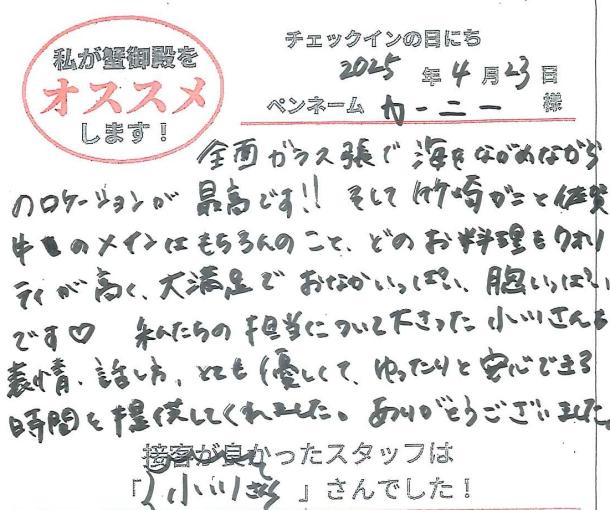 私が蟹御殿を
オススメ
します！
チェックインの日にち
2025 年 4 月 23 日
ペンネーム カーニー 様
全面ガラス張で 海をながめながら
のロケーションが 最高です!! そして 竹崎がにと佐賀
牛のメインはもちろんのこと、どのお料理もクオリ
ティが高く、大満足で おなかいっぱい、胸いっぱい
です♡ 私たちの担当について下さった 小川さんも
表情、話し方、とても優しくて、ゆったりと安心できる
時間を提供してくれました。ありがとうございました。
接客が良かったスタッフは
「小川さん」さんでした！